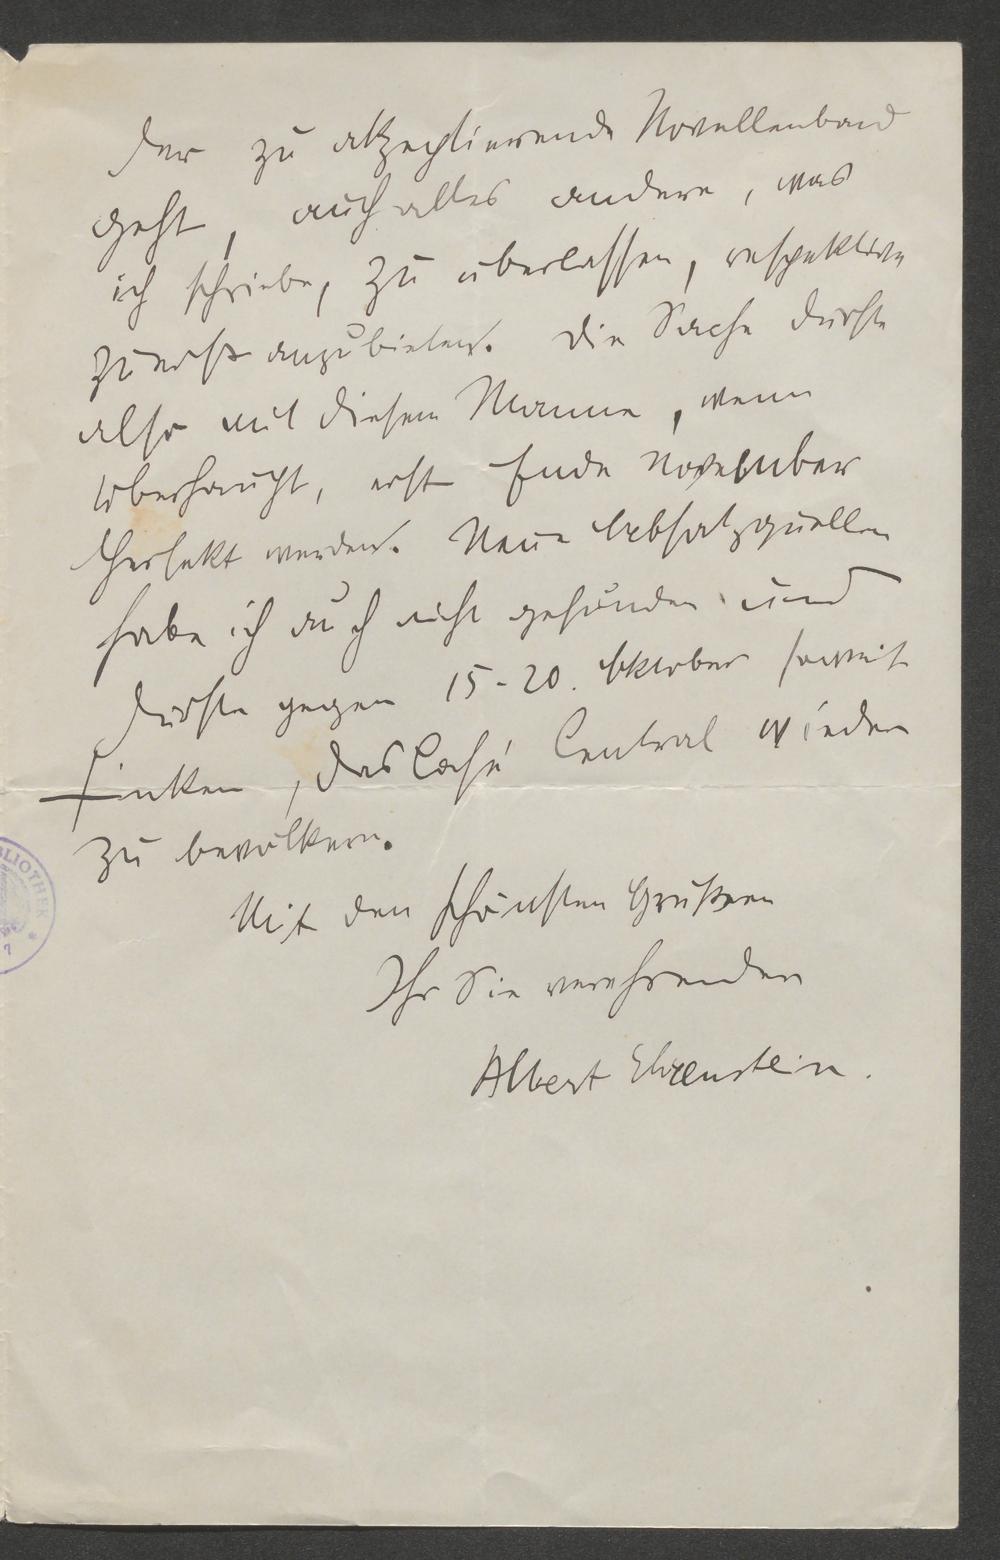 der zu akzeptierende Novellenband
geht, auch alles andere, was
ich schriebe, zu überlassen, respektive
zuerst anzubieten. Die Sache dürfte
also mit diesem Manne, wenn
überhaupt, erst Ende November
perfekt werden. Neue Absatzquellen
habe ich auch nicht gefunden und
dürfte gegen 15-20. Oktober somit
sinken, das Café Central wieder
zu bevölkern.
Mit den schönsten Grüßen
Ihr Sie verehrender
Albert Ehrenstein.
BLIOTHEK